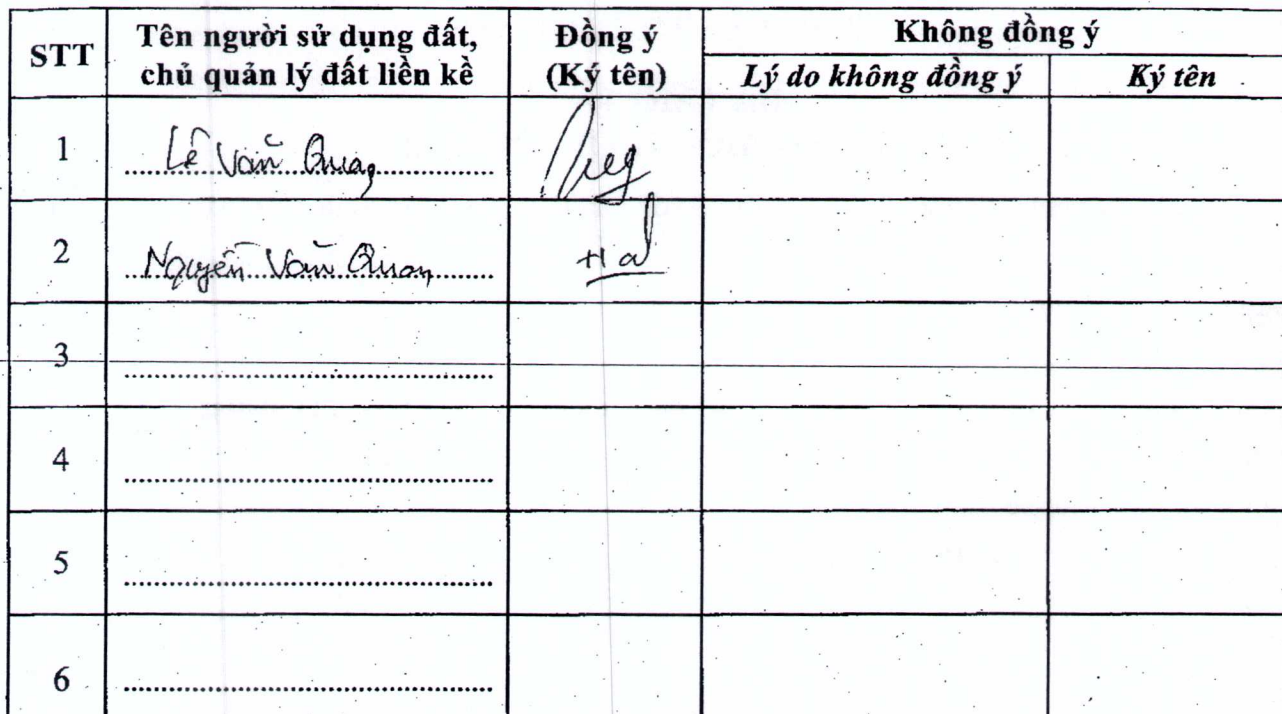 STT
Tên người sử dụng đất,
chủ quản lý đất liền kề
Đồng ý
(Ký tên)
Không đồng ý
Lý do không đồng ý
Ký tên
1
Lê Văn Quang
2
Nguyễn Văn Quan
3
4
5
6